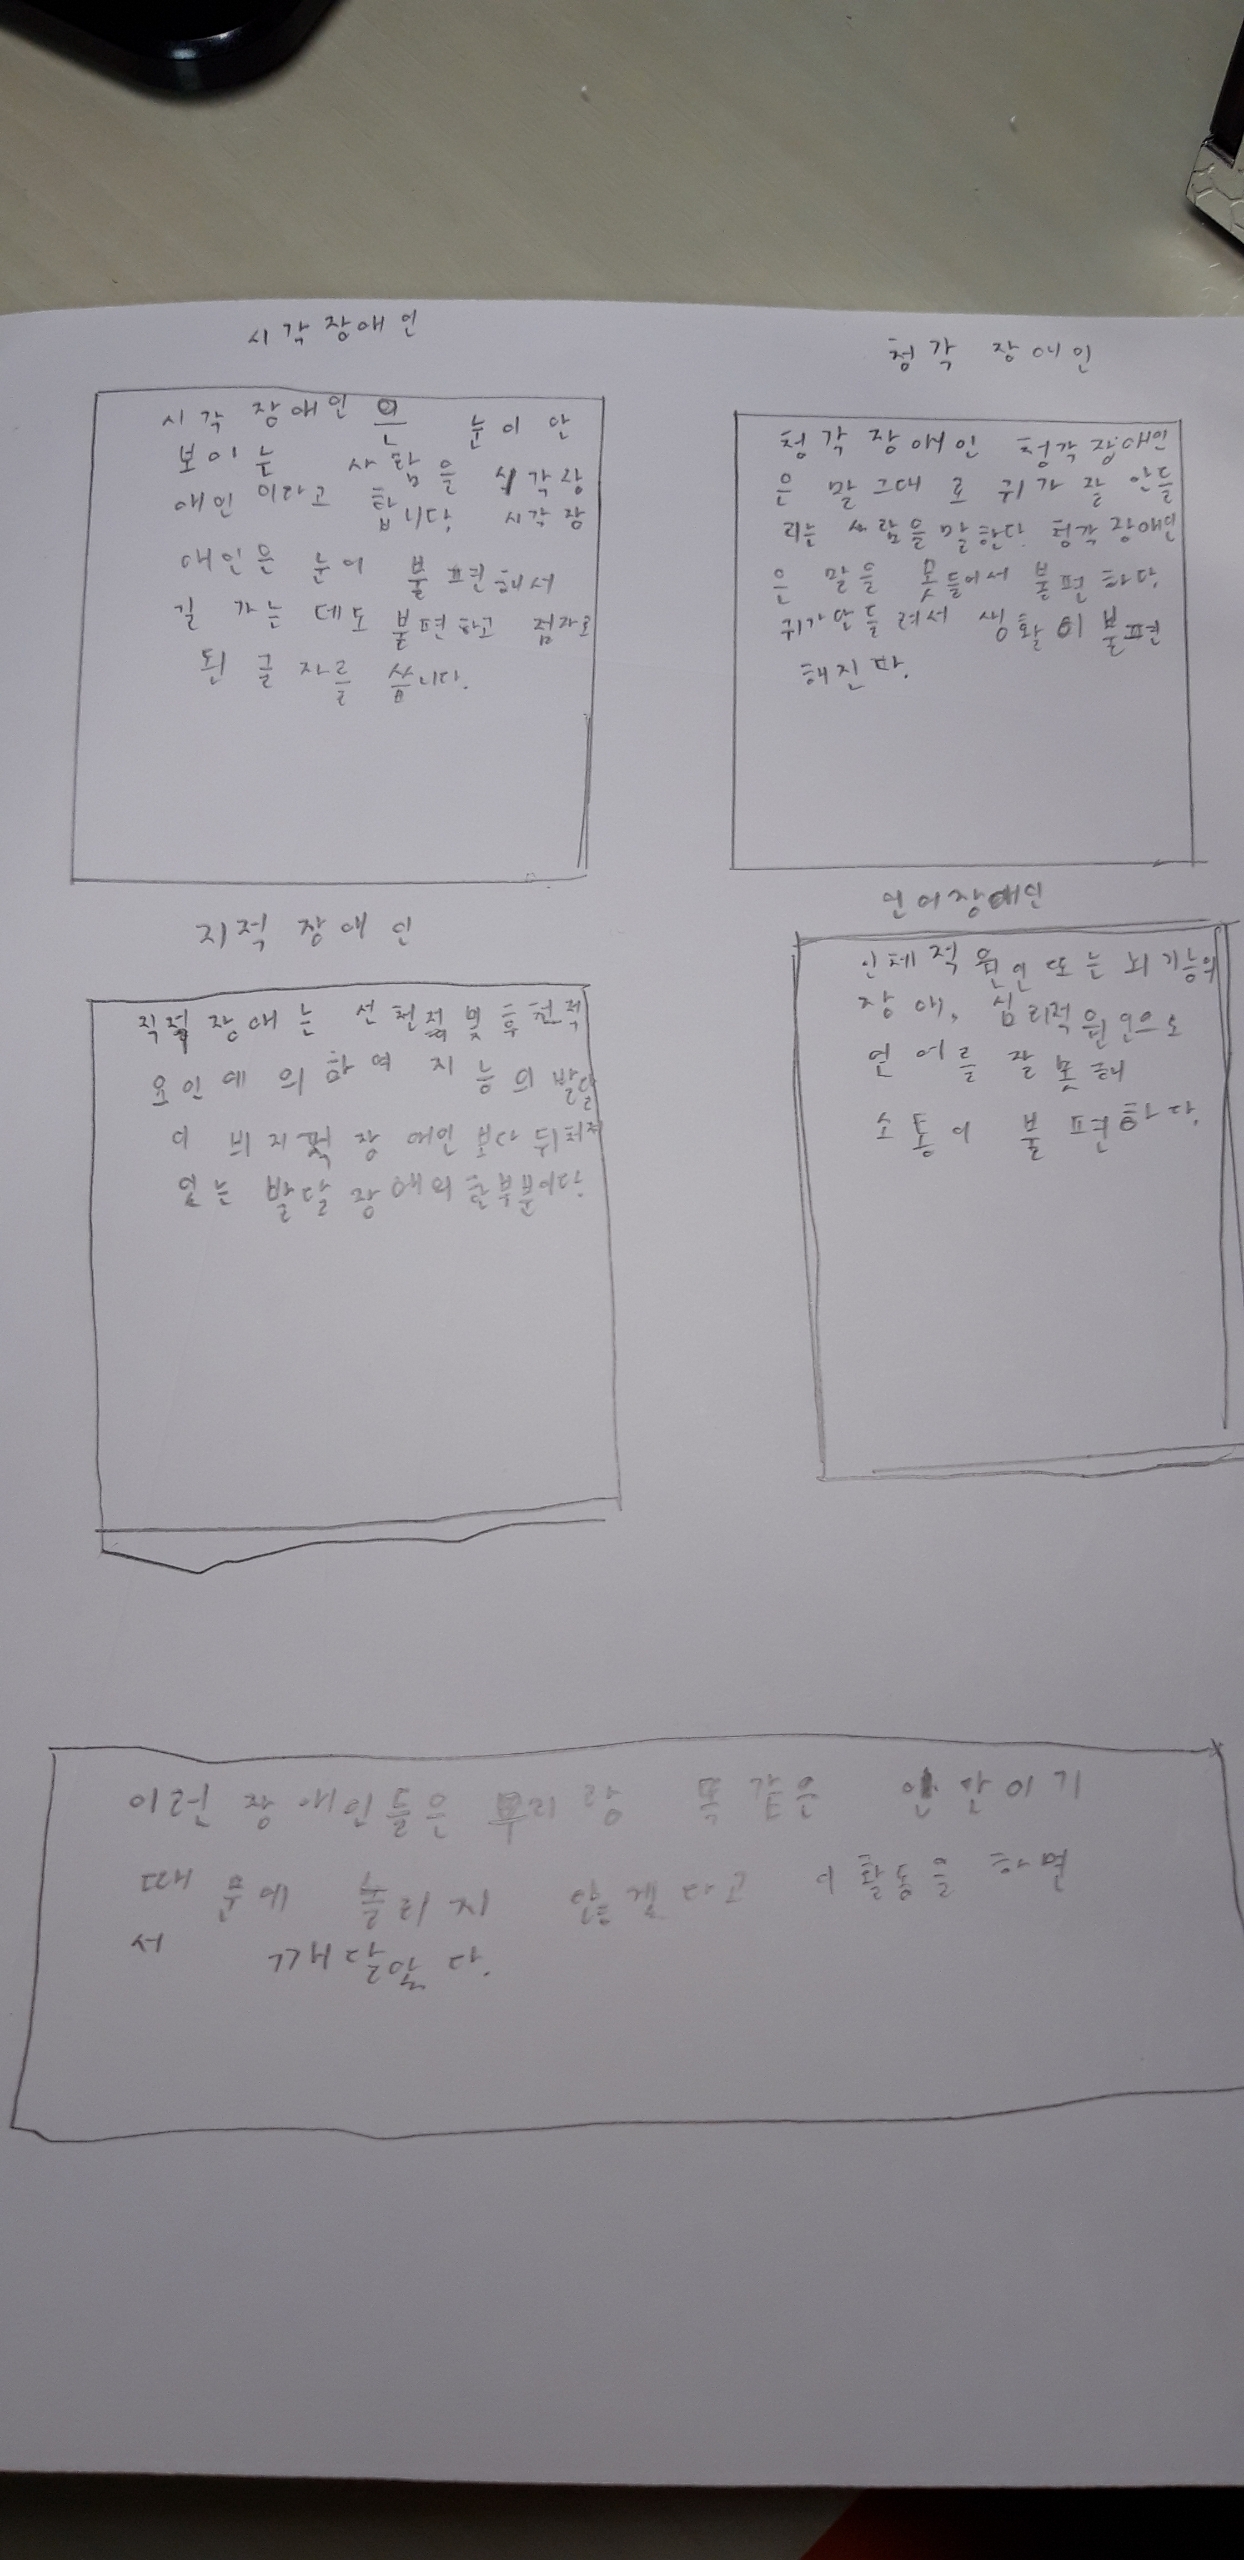 시각장애인
시각 장애인 은 눈이 안
보이는 사람을 시각장
애인 이라고 합니다. 시각 장
애인은 눈이 불편해서
길 가는 데도 불편하고 점자로
된 글 자를 씁니다.
청각 장애인
청각 장애인 청각 장애인
은 말 그대 로 귀 가 잘 안들
리는 사람을 말한다. 청각 장애인
은 말을 못들어서 불편 하다.
귀가안들려서 생활이 불편
해진다.
지적 장애인
장애는 선천적 및 후천적
요인에 의하여 지능의 발달
이 비지적 장애인 보다 뒤처져
있는 발달 장애의 한부분이다.
언어장애인
인체적 원인 또는 뇌기능의
장애, 심리적 원인으로
언어를 잘 못해
소통이 불편하다.
이런 장애인들은 우리랑 똑같은 이기
때문에 놀리지 않겠다고 이활동을 하면
서 깨달았다.